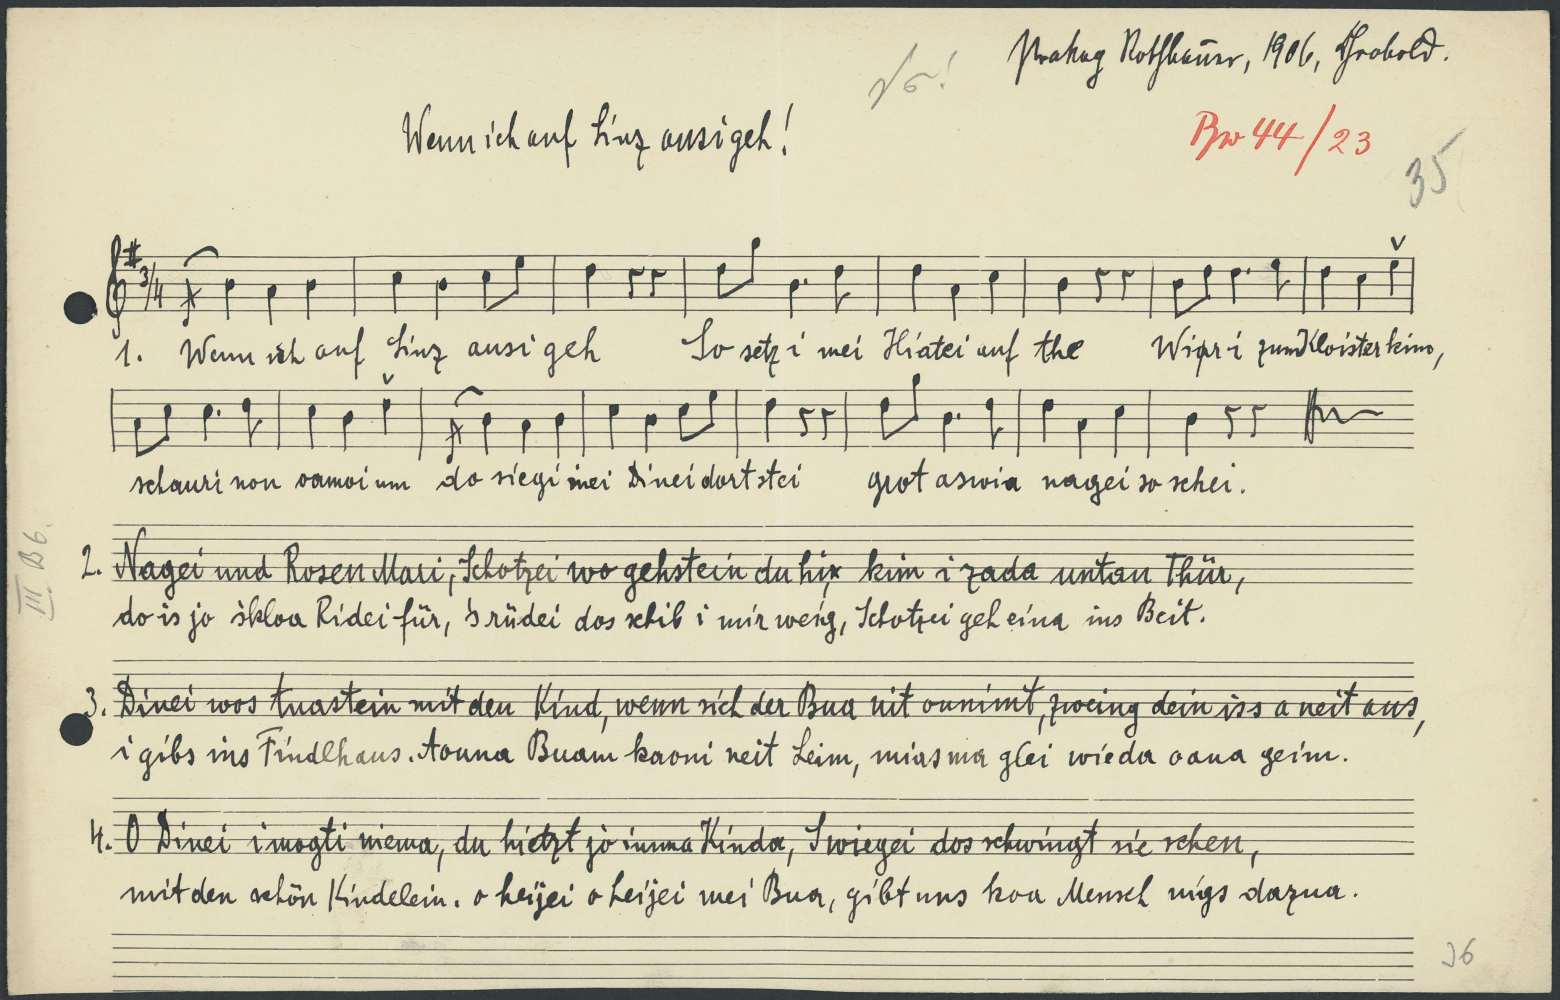 Rothbauer, 1906,
No!
Wenn ich auf Linz ausi geh!
Bw 44/23
35
3/4
1. Wenn ich auf Linz ausi geh So setz i mei Hiatei auf the Wior i zum Kloister kim,
schauri non oamoi um do siegi mei Dinei dort stei grot aswia nagei so schei.
III B 6.
2. Nagei und Rosen Mari, Schotzei wo gehstein du hi, kim i zada untan Thür,
do is jo s'kloa Ridei für, 's rüdei dos schib i mir weig, Schotzei geh eina ins Beit.
3. Dinei wos tuastein mit den Kind, wenn sich der Bua nit onnimt, zweing dein iss a neit aus,
i gibs ins Findlhaus. Aouna Buam kaoni neit Leim, mias ma glei wieda oana geim.
4. O Dinei i mogti niema, du hietzt jo imma Kinda, S wiegei dos schwingt sie schen,
mit den schön Kindelein. o heijei o heijei mei Bua, gibt uns koa Mensch nigs dazua.
36